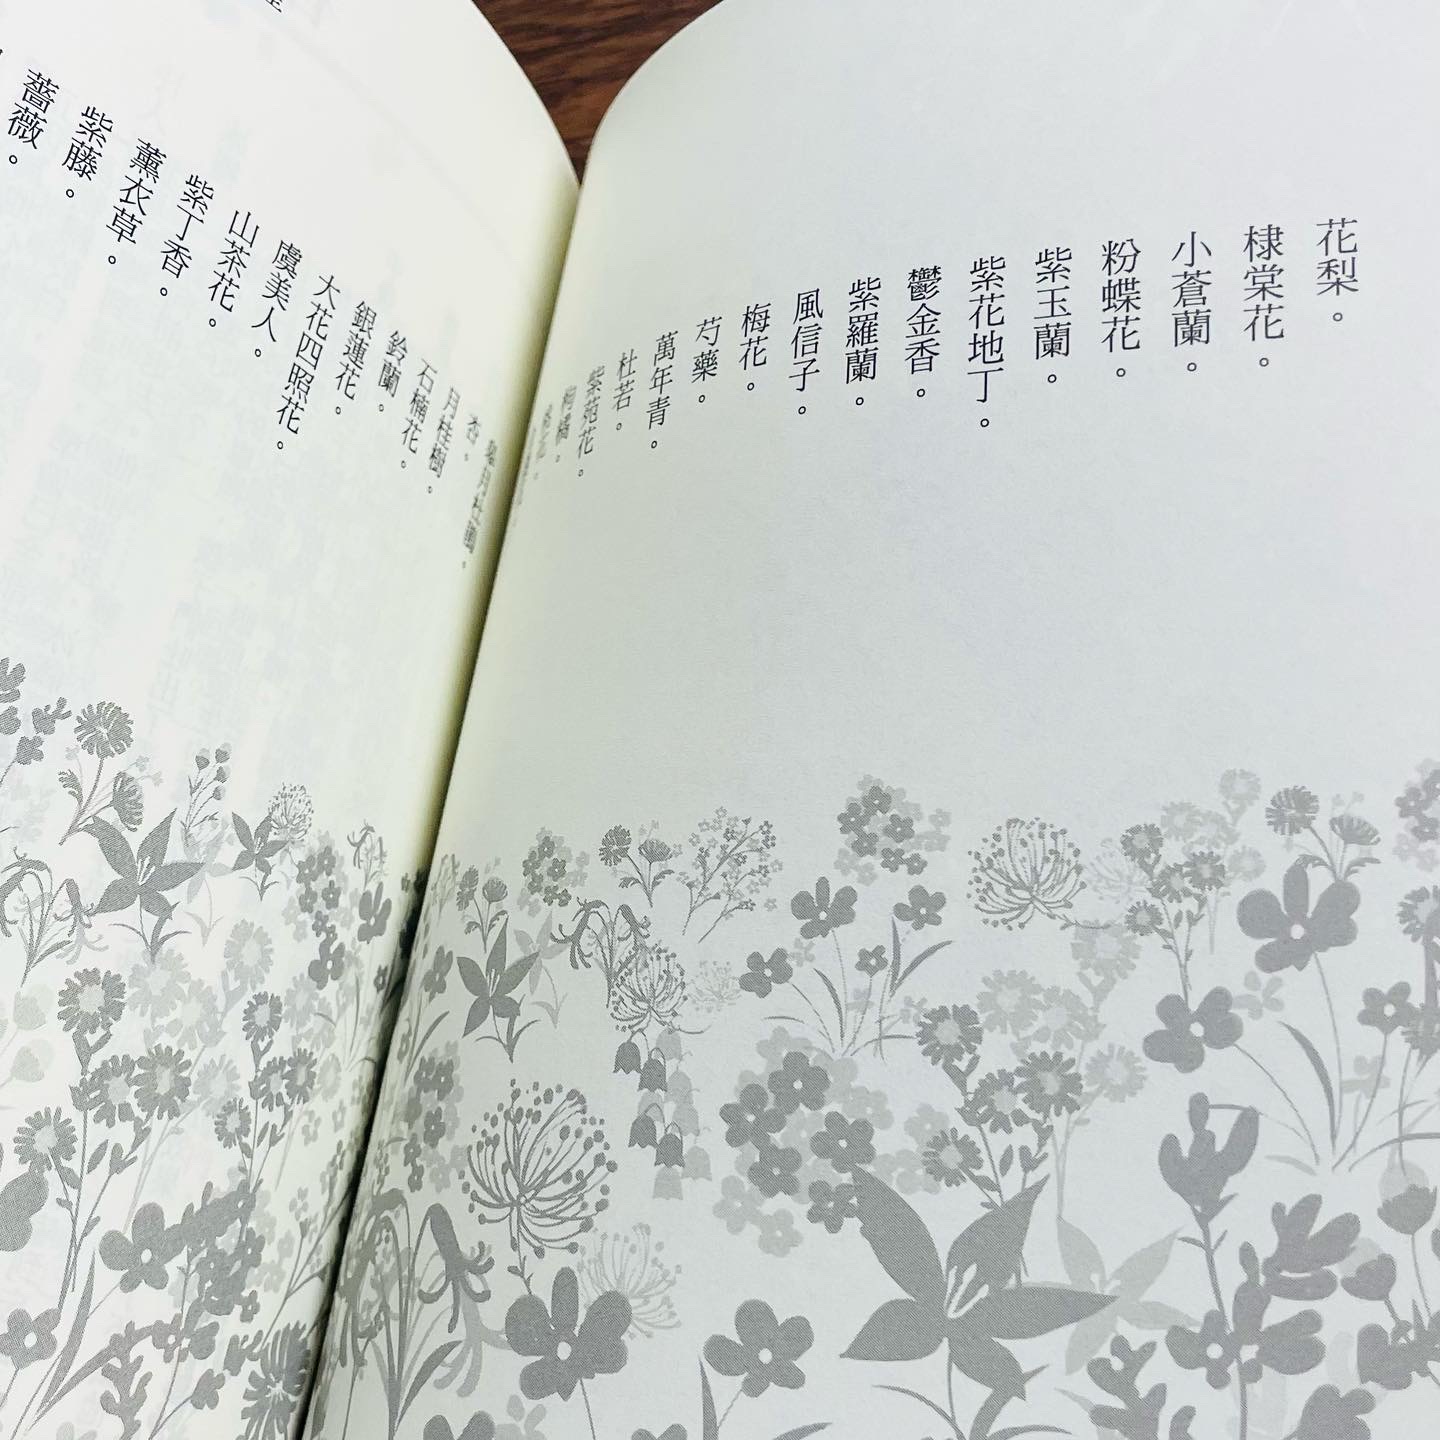 花梨。
棣棠花。
小蒼蘭。
粉蝶花。
紫玉蘭。
紫花地丁。
鬱金香。
紫羅蘭。
風信子。
梅花。
芍藥。
萬年青。
杜若。
紫苑花。
枸橘。
皋月杜鵑。
杏。
月桂樹。
石楠花。
鈴蘭。
銀蓮花。
大花四照花。
虞美人。
山茶花。
紫丁香。
薰衣草。
紫藤。
薔薇。